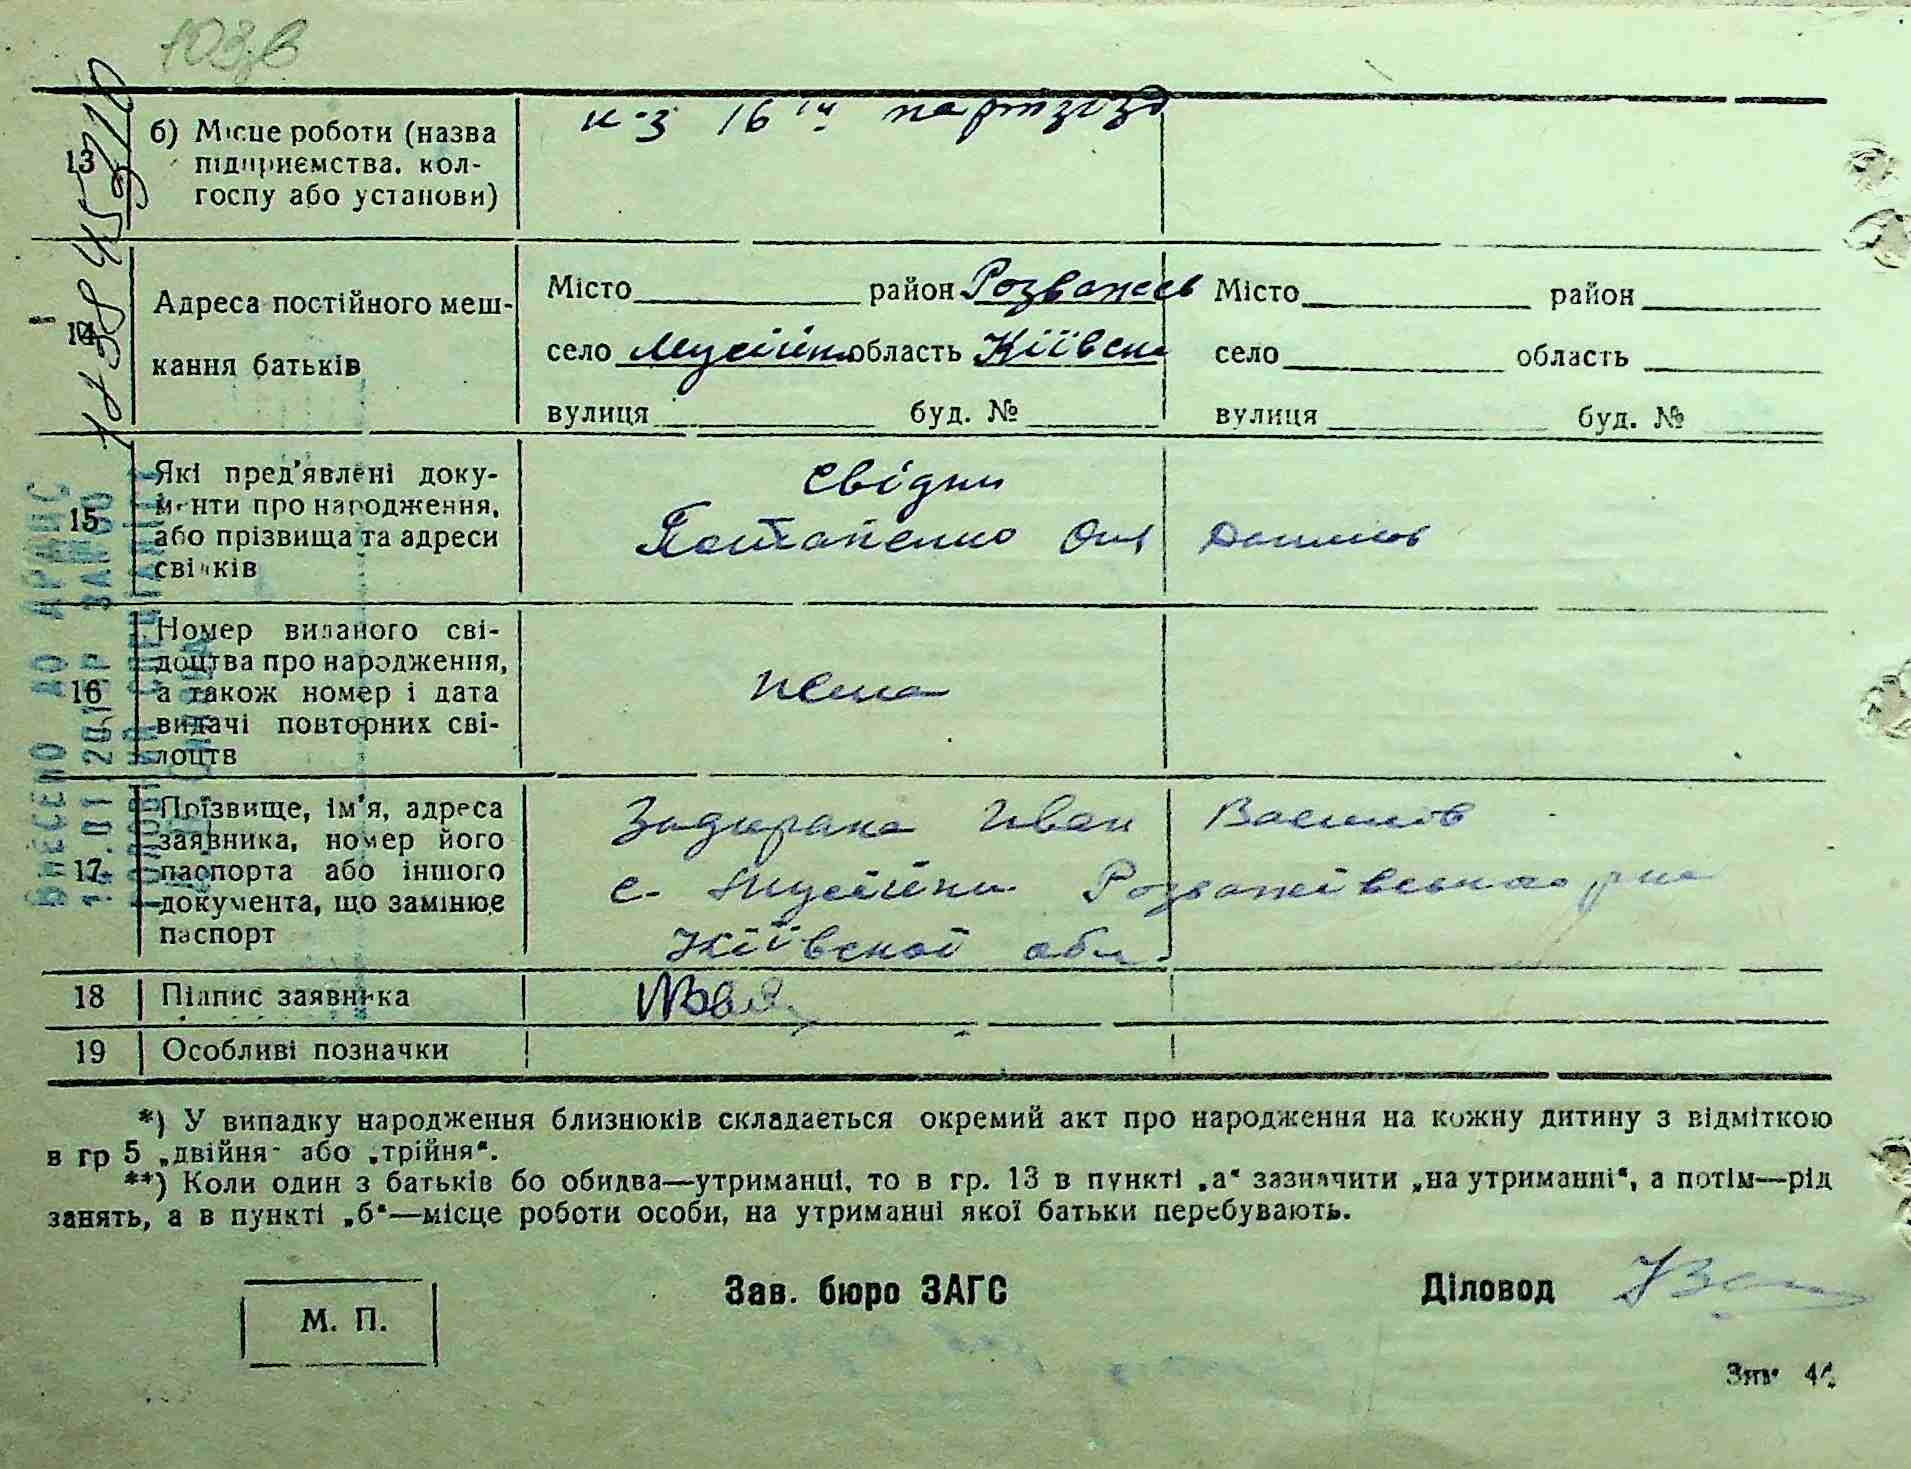 103в
13
б) Місце роботи (назва
підприємства, кол-
госпу або установи)
к-з 16 ій партзїзд
14
Адреса постійного меш-
кання батьків
Місто район Розважев Місто район
село Мусійки область Київськ село область
вулиця буд. № вулиця буд. №
15
Які пред'явлені доку-
менти про народження,
або прізвища та адреси
свідків
свідки
Потапенко
16
Номер виданого сві-
доцтва про народження,
а також номер і дата
видачі повторних сві-
доцтв
нема
17
Прізвище, ім'я, адреса
заявника, номер його
паспорта або іншого
документа, що замінює
паспорт
Задорожн Иван Василов
с. Мусійки Розважівського р-на
Київської обл.
18 Підпис заявника
19 Особливі позначки
*) У випадку народження близнюків складається окремий акт про народження на кожну дитину з відміткою
в гр 5 „двійня" або „трійня".
**) Коли один з батьків бо обидва—утриманці, то в гр. 13 в пункті „а" зазначити „на утриманні", а потім—рід
занять, а в пункті „б"—місце роботи особи, на утриманні якої батьки перебувають.
М. П.
Зав. бюро ЗАГС
Діловод
ВНЕСЕНО ДО